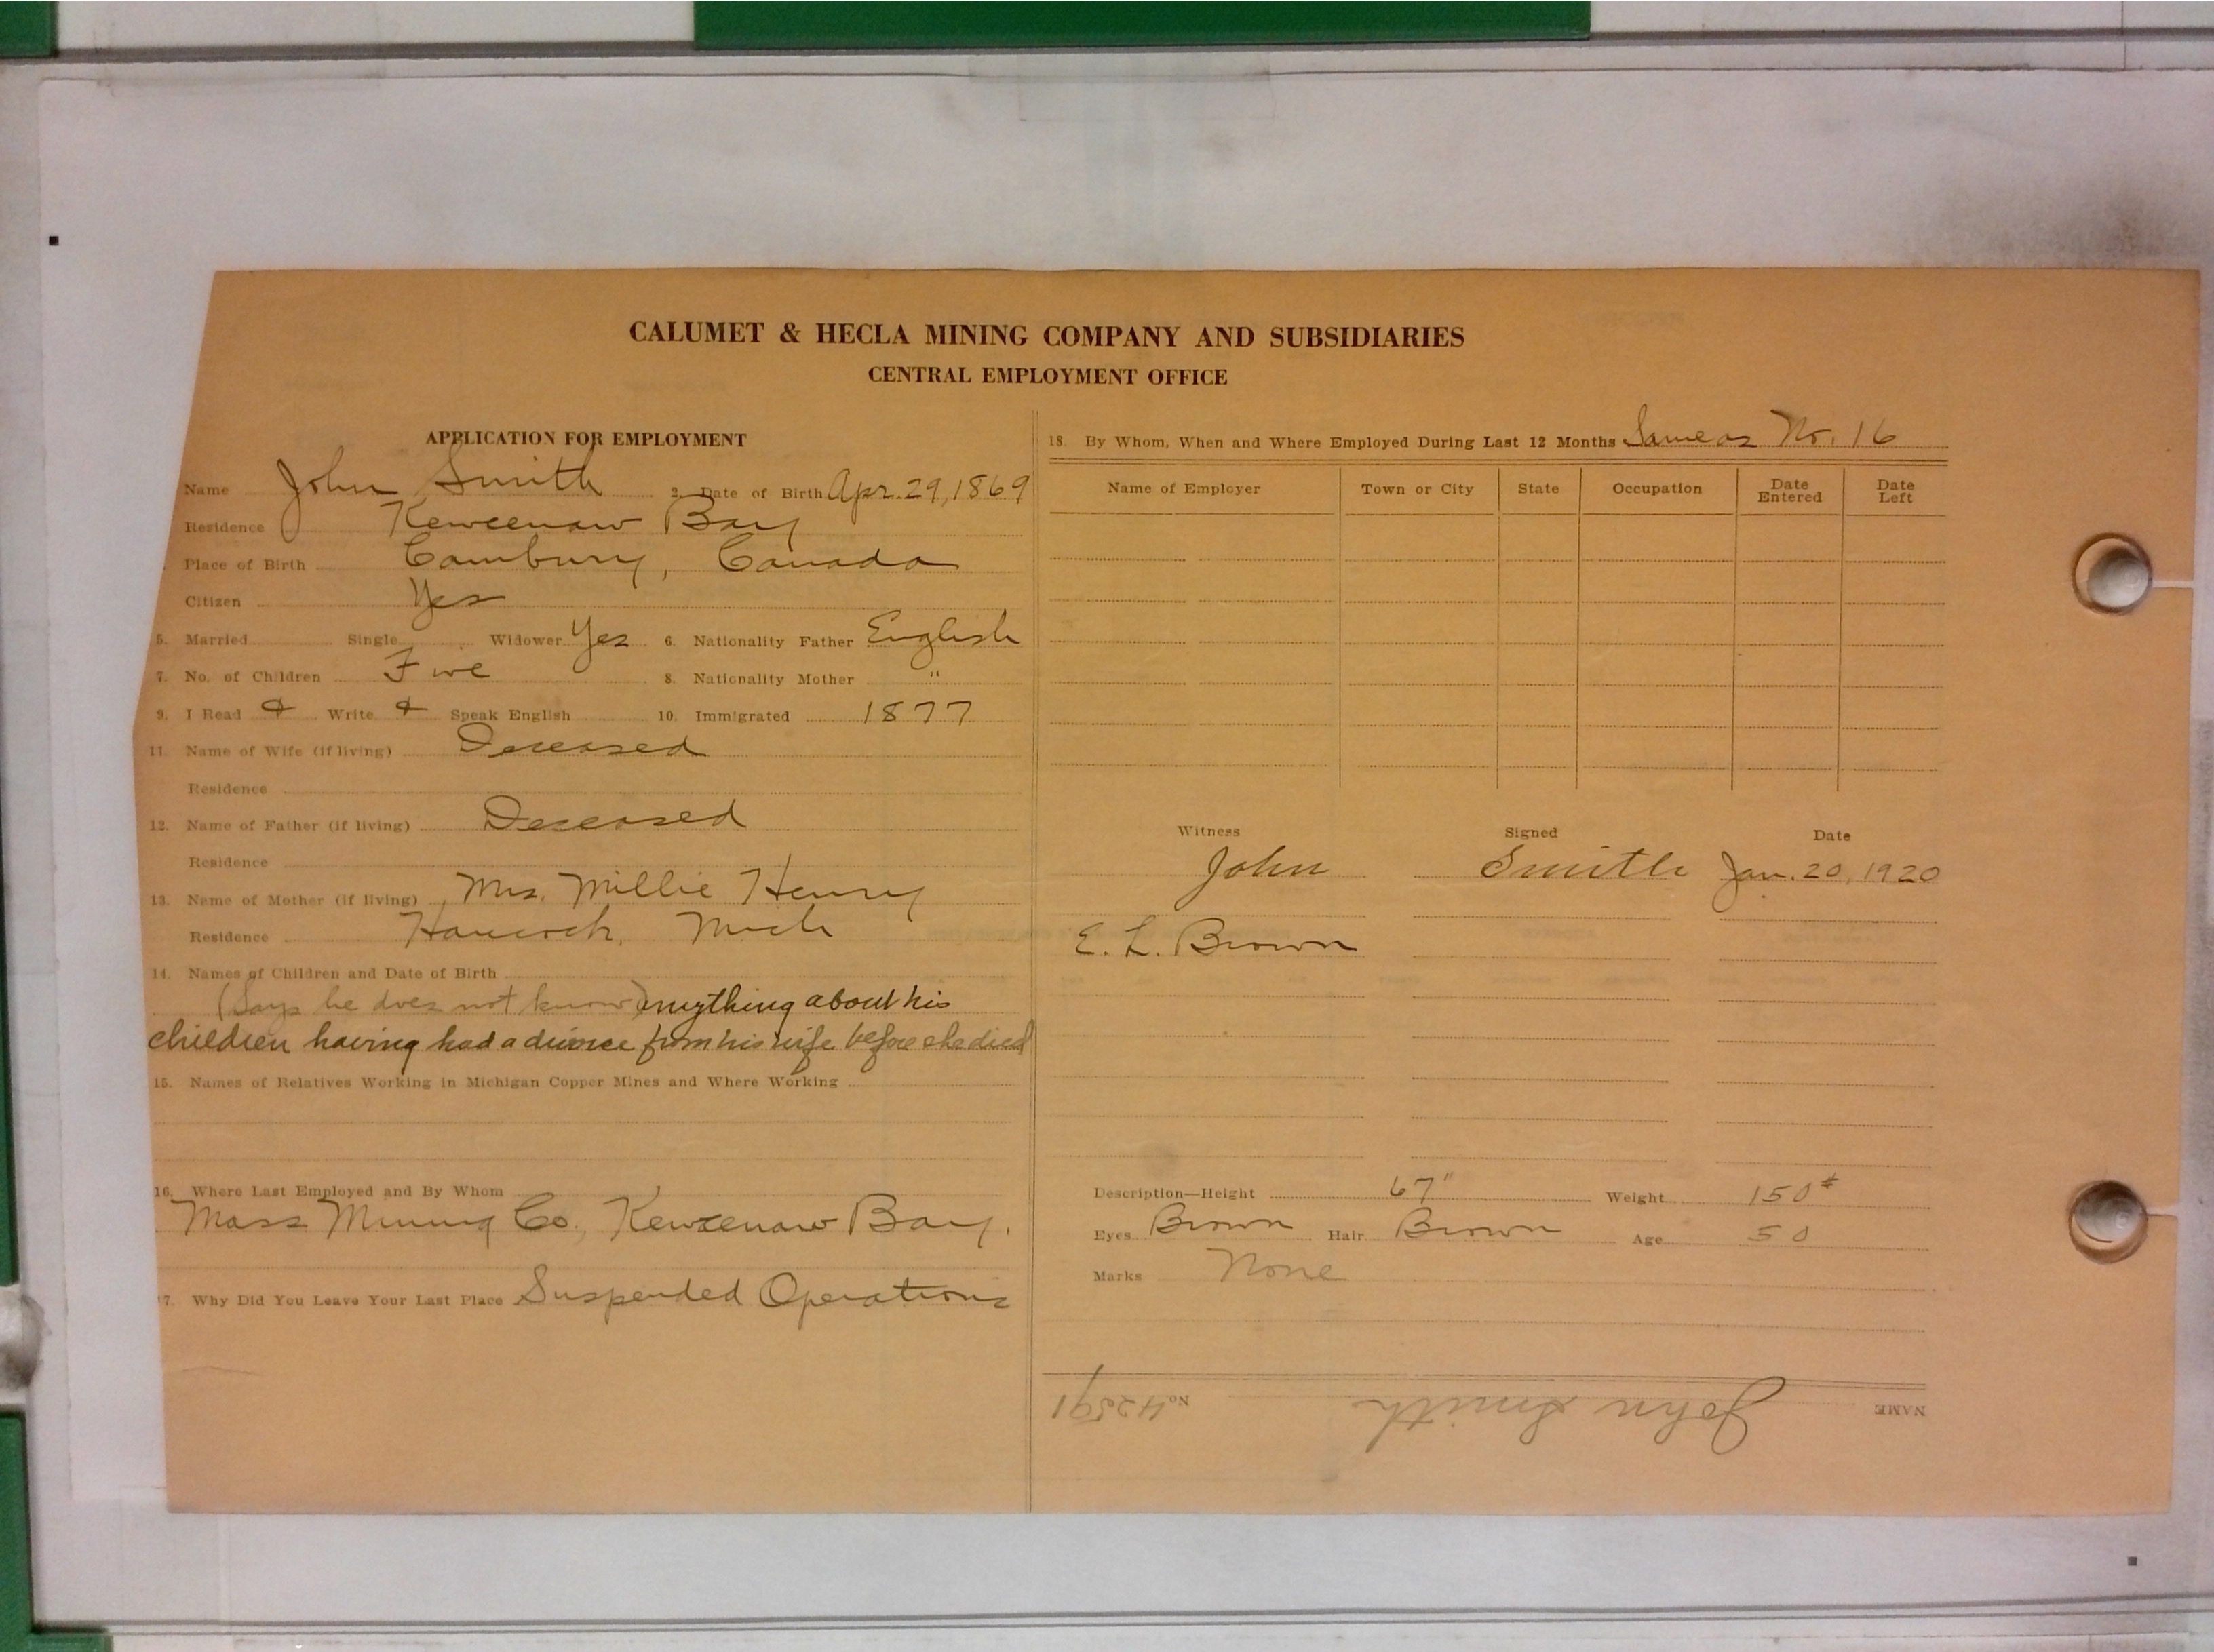 CALUMET & HECLA MINING COMPANY AND SUBSIDIARIES
CENTRAL EMPLOYMENT OFFICE
APPLICATION FOR EMPLOYMENT
Name John Smith 2. Date of Birth Apr. 29, 1869
Residence Keweenaw Bay
Place of Birth Cambury, Canada
Citizen Yes
5. Married Single Widower Yes 6. Nationality Father English
7. No. of Children Five 8. Nationality Mother "
9. I Read & Write & Speak English 10. Immigrated 1877
11. Name of Wife (if living) Deceased
Residence
12. Name of Father (if living) Deceased
Residence
13. Name of Mother (if living) Mrs. Millie Henry
Residence Hancock, Mich
14. Names of Children and Date of Birth
(Says he does not know) anything about his
children having had a divorce from his wife before she died
15. Names of Relatives Working in Michigan Copper Mines and Where Working
16. Where Last Employed and By Whom
Mass Mining Co., Keweenaw Bay.
17. Why Did You Leave Your Last Place Suspended Operations
18. By Whom, When and Where Employed During Last 12 Months Same as No. 16
Name of Employer Town or City State Occupation Date Entered Date Left
Witness Signed Date
John Smith Jan. 20, 1920
E. L. Brown
Description—Height 67" Weight 150#
Eyes Brown Hair Brown Age 50
Marks None
NAME John Smith No. 42591